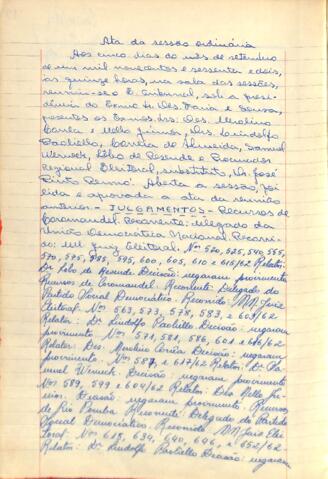 Ata da sessão ordinária
Aos cinco dias do mês de setembro
de um mil novecentos e sessenta e dois,
às quinze horas, na sala das sessões,
reuniu-se o E. Tribunal, sob a presi-
dência do Exmo. Sr. Des. Faria e Sousa,
presentes os Exmos. Srs. Des. Merolino
Corrêa e Mello Júnior, Drs. Lindolfo
Paoliello, Corrêa de Almeida, Samuel
Werneck, Lobo de Resende e Procurador
Regional Eleitoral, substituto, Dr. José
Pinto Renno. Aberta a sessão, foi
lida e aprovada a ata da reunião
anterior - JULGAMENTOS - Recursos de
Coromandel. Recorrente: delegado da
União Democrática Nacional. Recorri-
do: MM. Juiz Eleitoral. Nos 520, 525, 540, 555,
570, 575, 595, 600, 605, 610 e 615/62 Relator:
Dr. Lobo de Resende Decisão: negaram provimento.
Recursos de Coromandel. Recorrente Delegado do
Partido Social Democrático. Recorrido: MM Juiz
Eleitoral. Nos 563, 573, 578, 583, e 603/62
Relator: Dr. Lindolfo Paoliello Decisão: negaram
provimento. Nos 571, 581, 586, 601 e 616/62
Relator: Des. Merolino Corrêa Decisão: negaram
provimento. Nos 587, e 617/62 Relator: Dr. Sa-
muel Werneck. Decisão: negaram provimento.
Nos 589, 599 e 604/62 Relator: Des. Mello Jú-
nior. Decisão: negaram provimento. Recursos
de Rio Pomba Recorrente: Delegado do Partido
Social Democrático. Recorrido MM Juiz Elei-
toral. Nos 618, 634, 640, 646, e 652/62
Relator: Dr. Lindolfo Paoliello Decisão: negaram